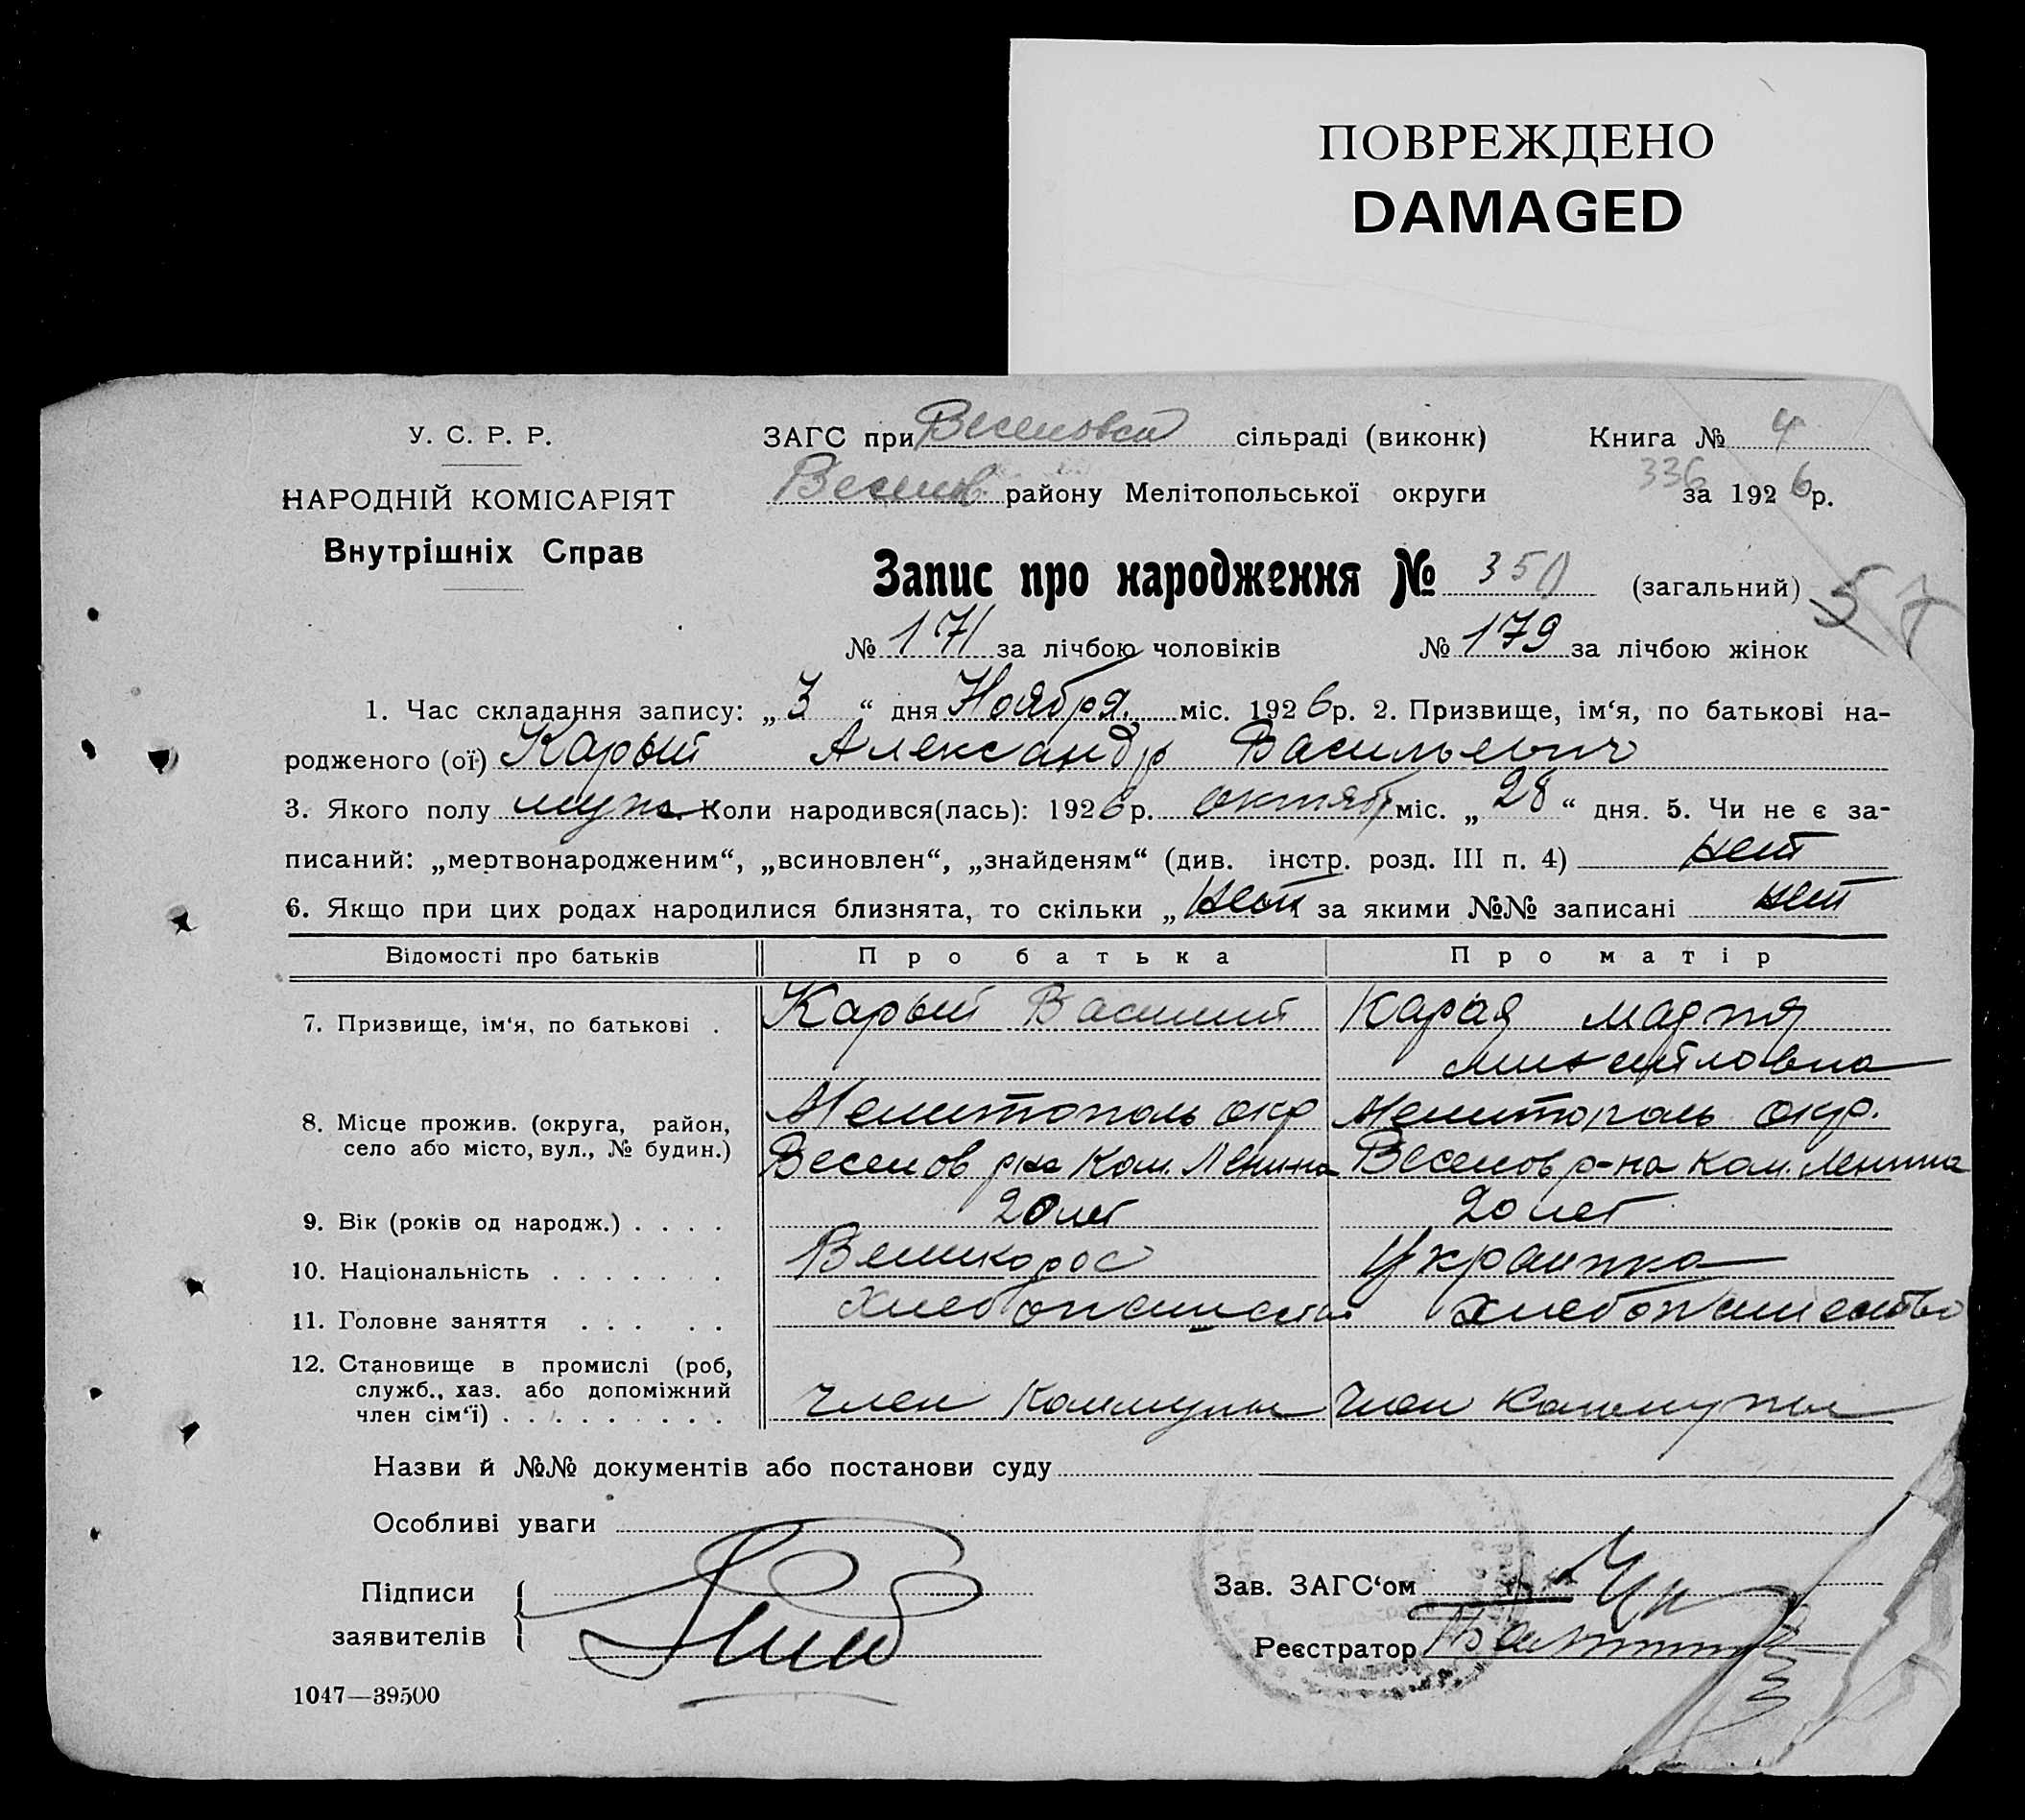 ПОВРЕЖДЕНО
DAMAGED
У. С. Р. Р.
НАРОДНІЙ КОМІСАРІЯТ
Внутрішніх Справ
ЗАГС при Веселовск сільраді (виконк) Книга № 4
Веселов району Мелітопольської округи 336 за 1926 р.
Запис про народження № 350 (загальний) 57
№ 171 за лічбою чоловіків № 179 за лічбою жінок
1. Час складання запису: „3“ дня Ноября міс. 1926 р. 2. Призвище, ім‘я, по батькові на-
родженого (ої) Карый Александр Васильевич
3. Якого полу муж. Коли народився(лась): 1926 р. октяб міс. „28“ дня. 5. Чи не є за-
писаний: „мертвонародженим“, „всиновлен“, „знайденям“ (див. інстр. розд. III п. 4) нет
6. Якщо при цих родах народилися близнята, то скільки „нет за якими №№ записані нет
Відомості про батьків Про батька Про матір
7. Призвище, ім‘я, по батькові . Карый Василий Карая Мария
Михайловна
8. Місце прожив. (округа, район, Мелитополь окр Мелитополь окр.
село або місто, вул., № будин.) Веселов р-на Ком. Ленина Веселов р-на Ком. Ленина
9. Вік (років од народж.) . . . . 20 лет 20 лет
10. Національність . . . . . . . Великорос Украинка
11. Головне заняття . . . . . Хлебопашество хлебопашество
12. Становище в промислі (роб,
служб., хаз. або допоміжний
член сім‘ї) . . . . . . . . . член Коммуны член Коммуны
Назви й №№ документів або постанови суду
Особливі уваги
Підписи
заявителів
Зав. ЗАГС‘ом
Реєстратор
1047—39500